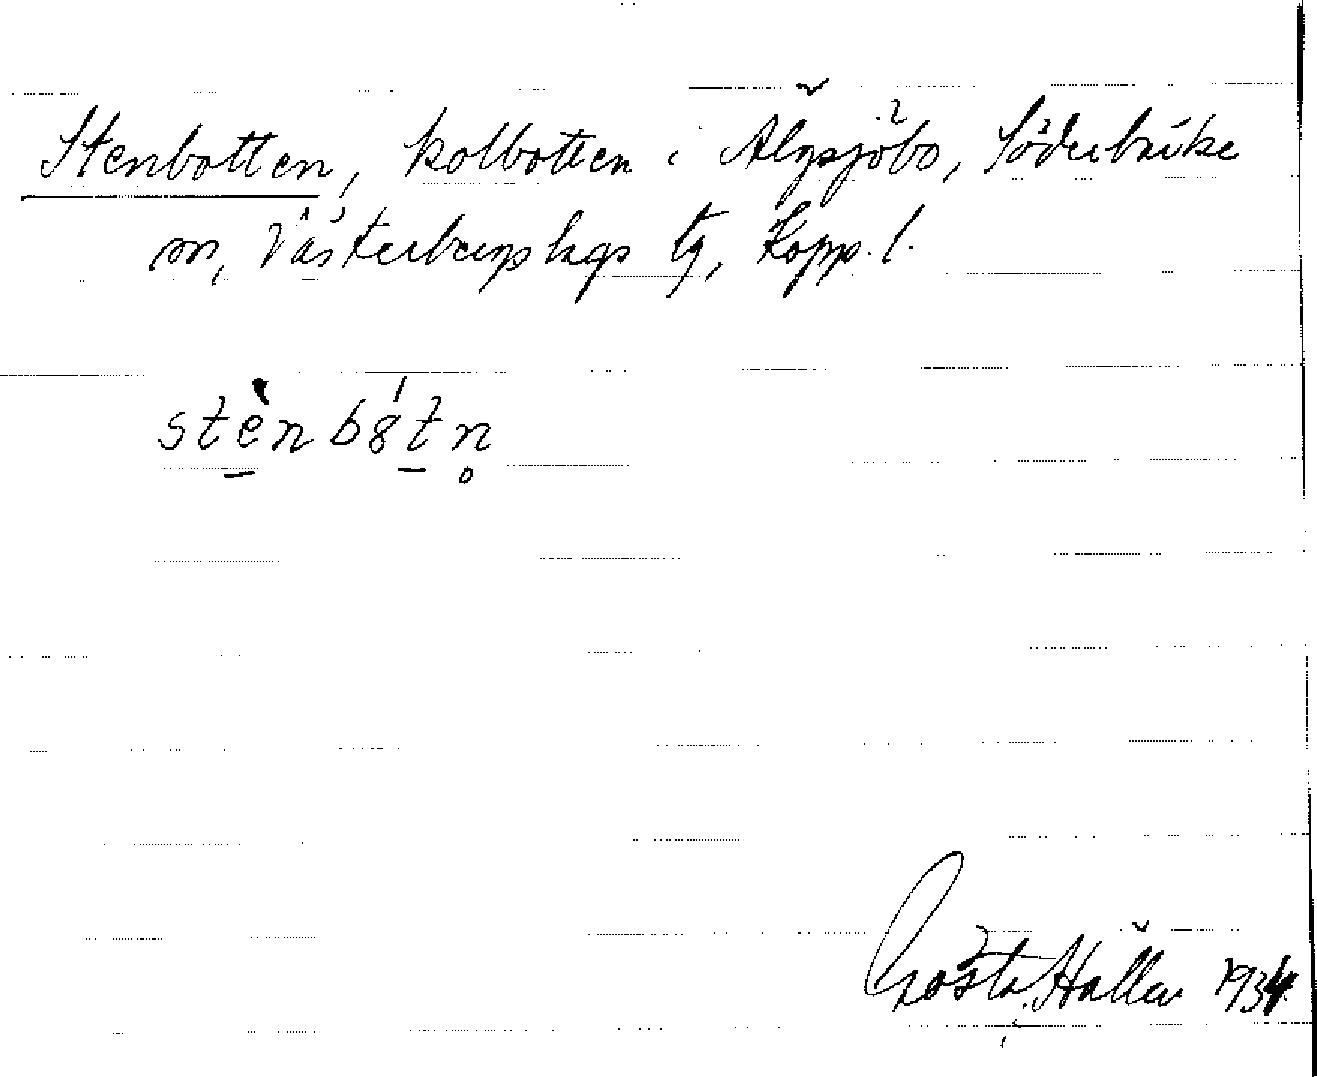 Stenbotten, kolbotten i Älgsjöbo, Söderbärke
sn, Västerbergslags tg, Kopp. l.
stèn bátn̥
Gösta Hallén 1934.